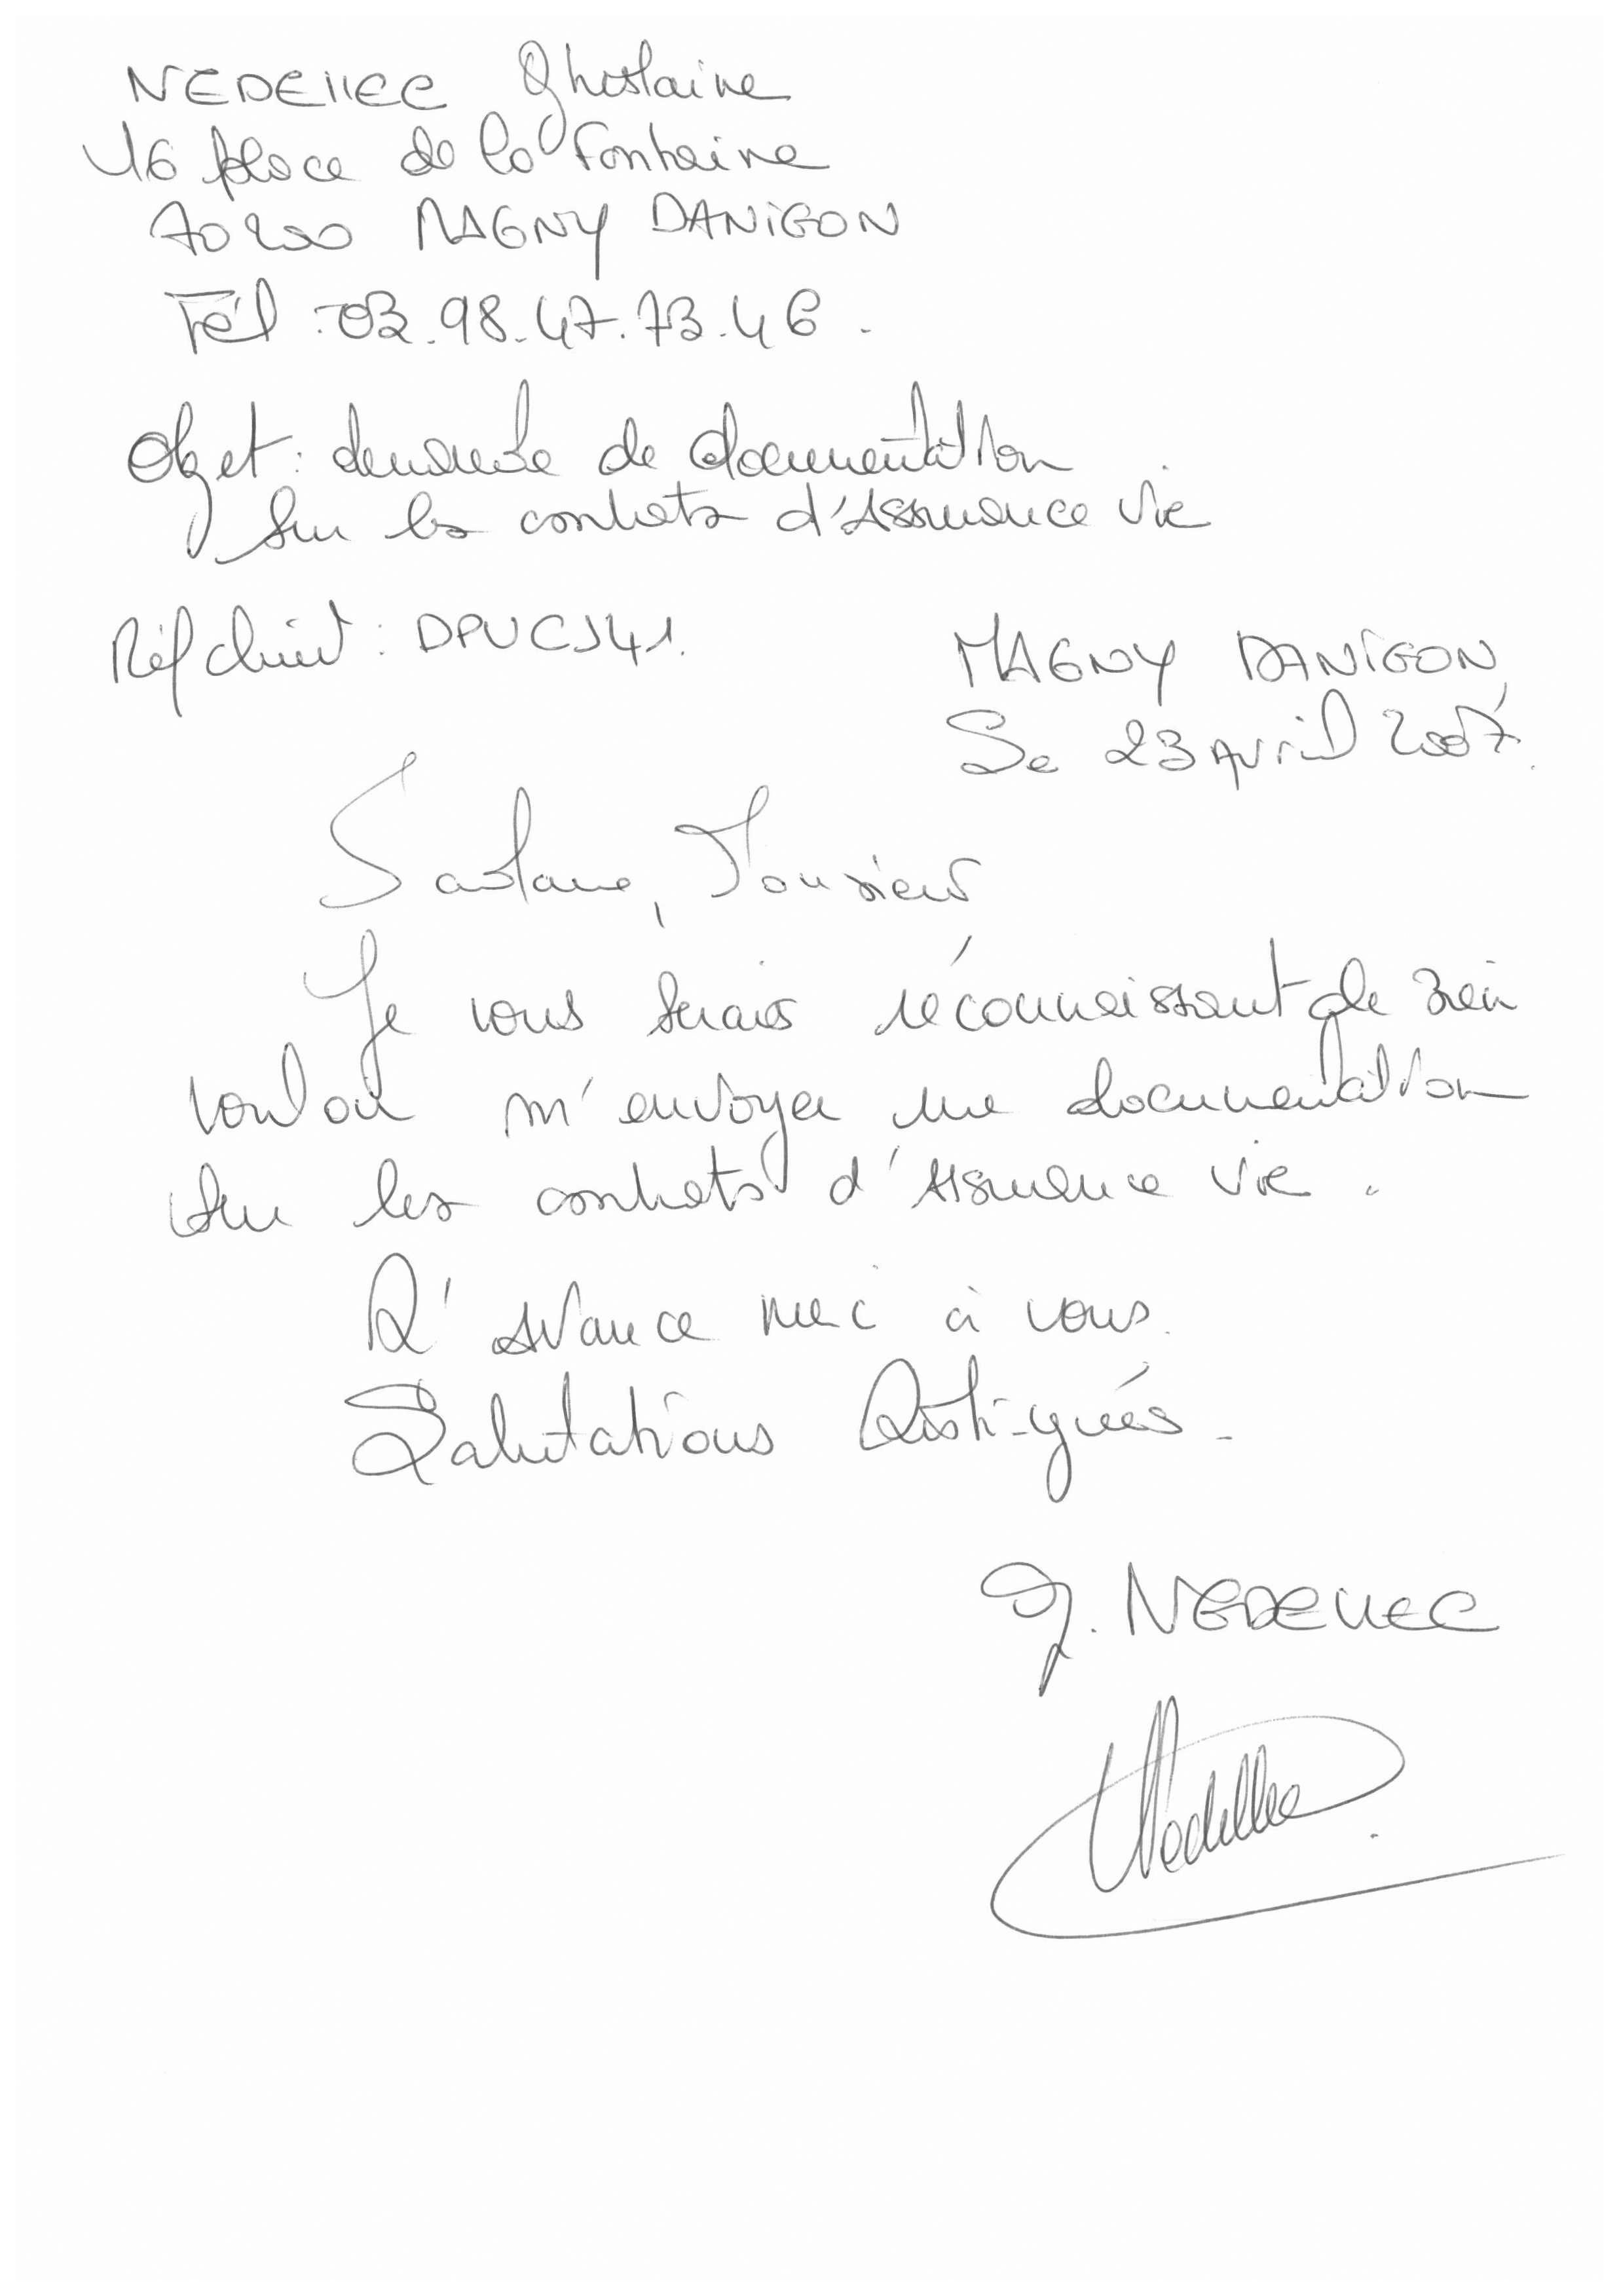 NEDELLEC Ghislaine
16 place de la Fontaine
70200 MAGNY DANIGON
Tél : 03.98.47.73.46.
Objet : demande de documentation
sur les contrats d'Assurance Vie
Réf client : DPUCJ41.
MAGNY DANIGON,
Le 23 Avril 2007.
Madame, Monsieur
Je vous serais réconnaissant de bien
vouloir m'envoyer une documentation
sur les contrats d'Assurance Vie.
D'avance merci à vous.
Salutations Distinguées.
G. NEDELLEC
Nedellec